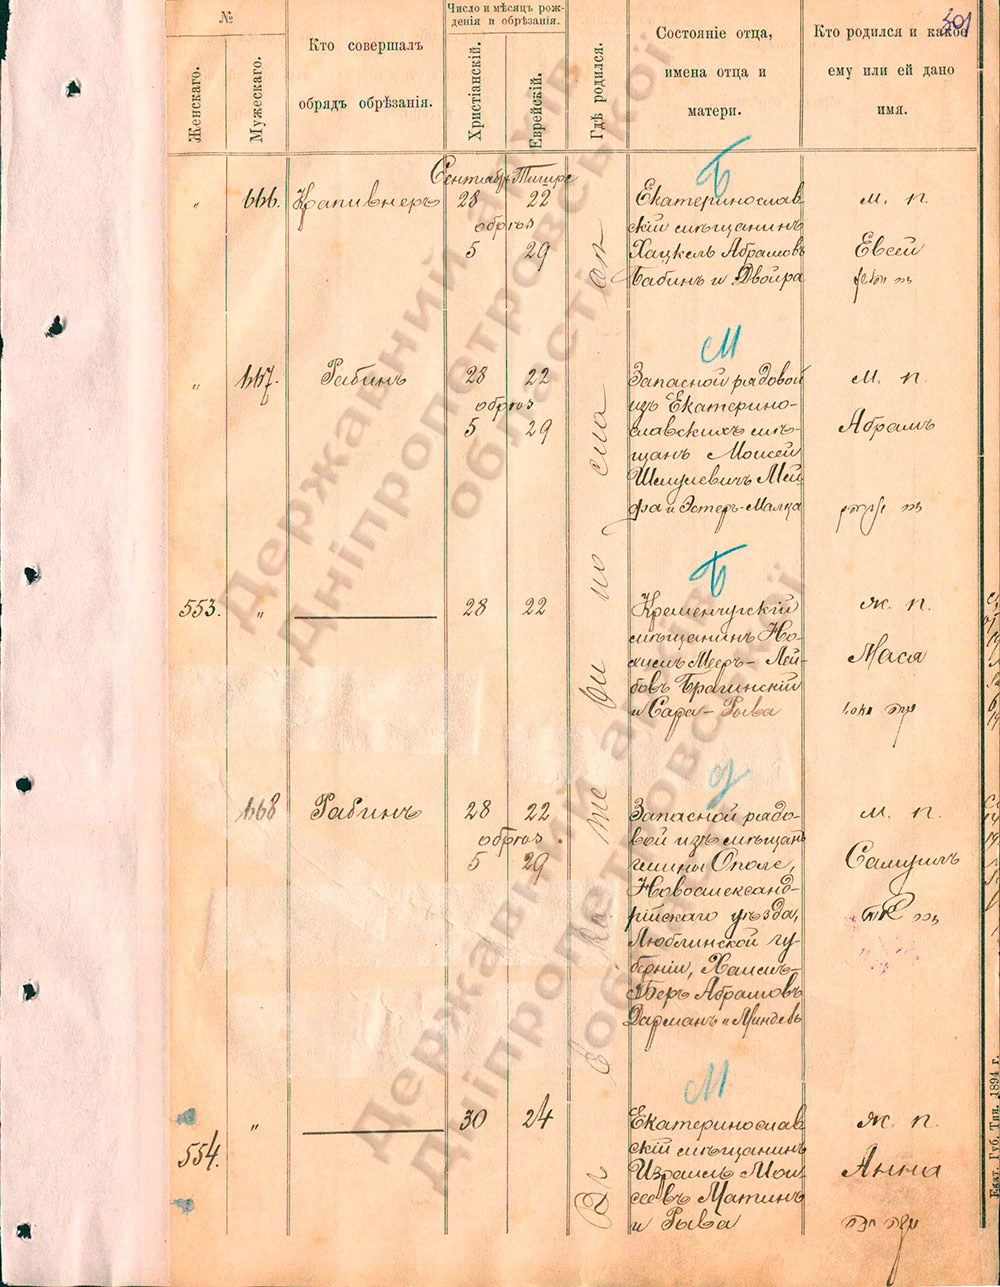 301
№
Женскаго.
Мужескаго.
Кто совершалъ
обрядъ обрѣзанія.
Число и мѣсяцъ рож-
денія и обрѣзанія.
Христіанскій.
Еврейскій.
Гдѣ родился.
Состояніе отца,
имена отца и
матери.
Кто родился и какое
ему или ей дано
имя.
Сентябрь Тишре
Б
„ 666. Крапивнеръ 28 22
обрѣз
5 29
Екатеринослав
скій мѣщанинъ
Хацкель Абрамовъ
Бабинъ и Двойра
м. п.
Евсей
М
„ 667. Рабинъ 28 22
обрѣз
5 29
Запасной рядовой
изъ Екатерино-
славскихъ мѣ-
щанъ Моисей
Шмулевичъ Мей-
фа и Эстеръ-Малка
м. п.
Абрамъ
Б
553. „ 28 22
Кременчугскій
мѣщанинъ Но-
химъ Мееръ-Лей-
бовъ Брагинскій
и Сара-Рыва
ж. п.
Мася
668 Рабинъ 28 22
обрѣз.
5 29
Запасной рядо-
вой изъ мѣщанъ
гмины Ополе,
Новоалександ-
рійскаго уѣзда,
Люблинской гу-
берніи, Хаимъ-
Беръ Абрамовъ
Дарманъ и Миндель
м. п.
Самуилъ
М
554. „ 30 24
Екатеринослав
скій мѣщанинъ
Израиль Мои-
сеевъ Матинъ
и Рыва
ж. п.
Анна
Екат. Губ. Тип. 1894 г.
Державний архів
Дніпропетровської
області
Державний архів
Дніпропетровської
області